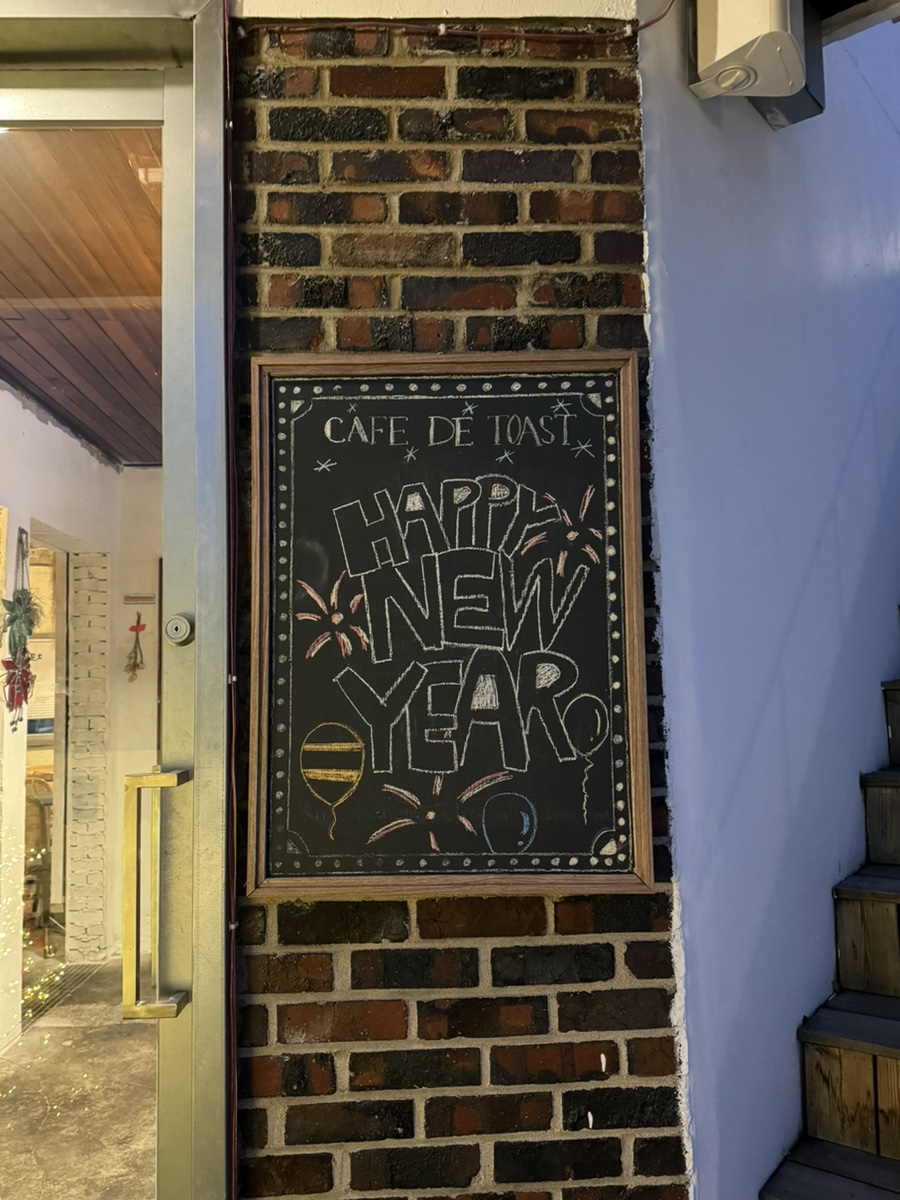 CAFE DE TOAST
HAPPY
NEW
YEAR